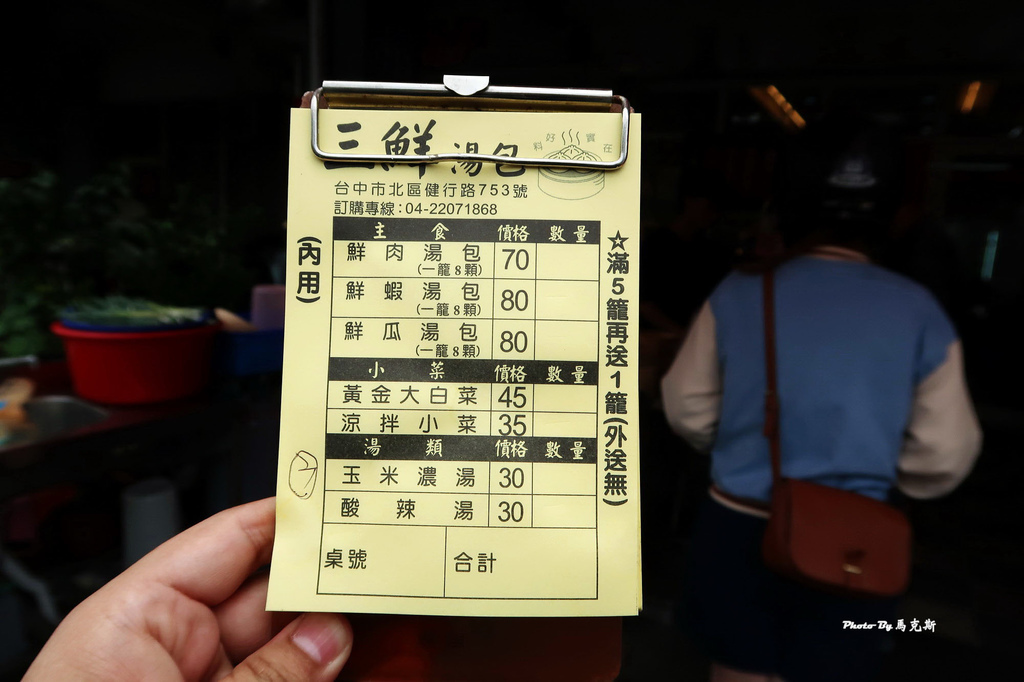 三鮮湯包
好料實在
台中市北區健行路753號
訂購專線:04-22071868
(內用)
主食 價格 數量
鮮肉湯包 70
(一籠8顆)
鮮蝦湯包 80
(一籠8顆)
鮮瓜湯包 80
(一籠8顆)
小菜 價格 數量
黃金大白菜 45
涼拌小菜 35
湯類 價格 數量
玉米濃湯 30
酸辣湯 30
桌號 合計
☆滿5籠再送1籠(外送無)
Photo By 馬克斯